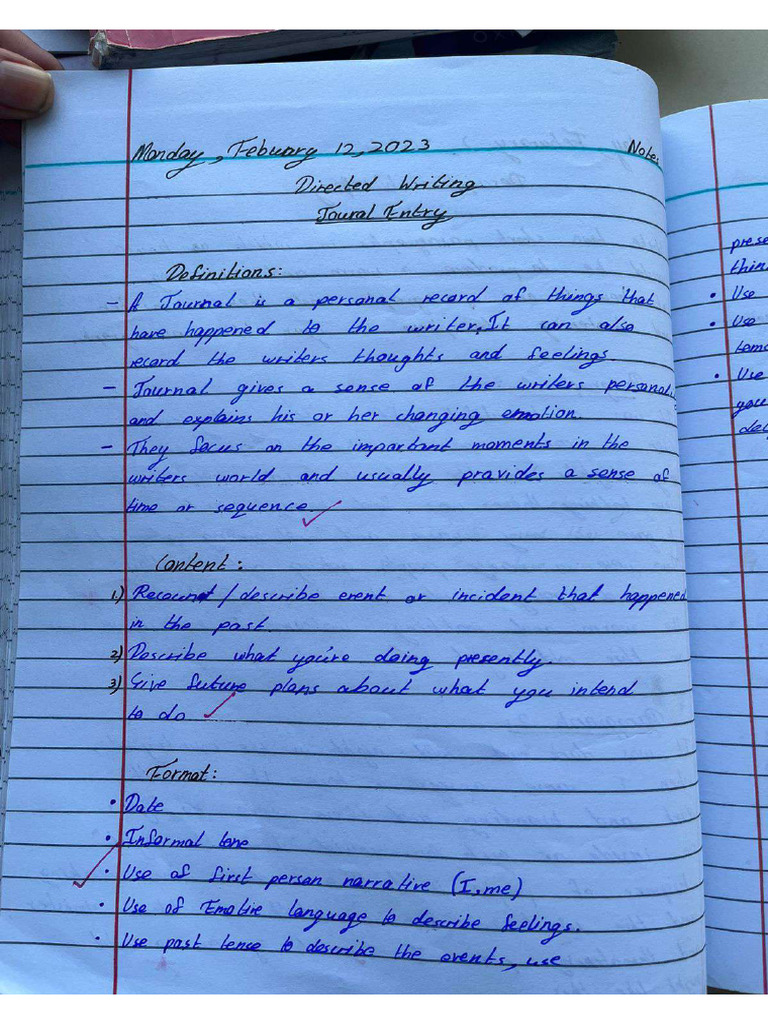 Monday, Febuary 12, 2023 Notes
Directed Writing
Joural Entry
Definitions:
- A Journal is a personal record of things that
have happened to the writer. It can also
record the writers thoughts and feelings.
- Journal gives a sense of the writers
and explains his or her changing emotion.
- They focus on the important moments in the
writers world and usually provides a sense of
time or sequence.
Content:
1) Recount / describe event or incident that happened
in the past.
2) Describe what you're doing presently.
3) Give future plans about what you intend
to do
Format:
• Date
• Informal tone
• Use of first person narrative (I, me)
• Use of Emotive language to describe feelings.
• Use past tence to describe the events, use
• Use
• Use
• Use